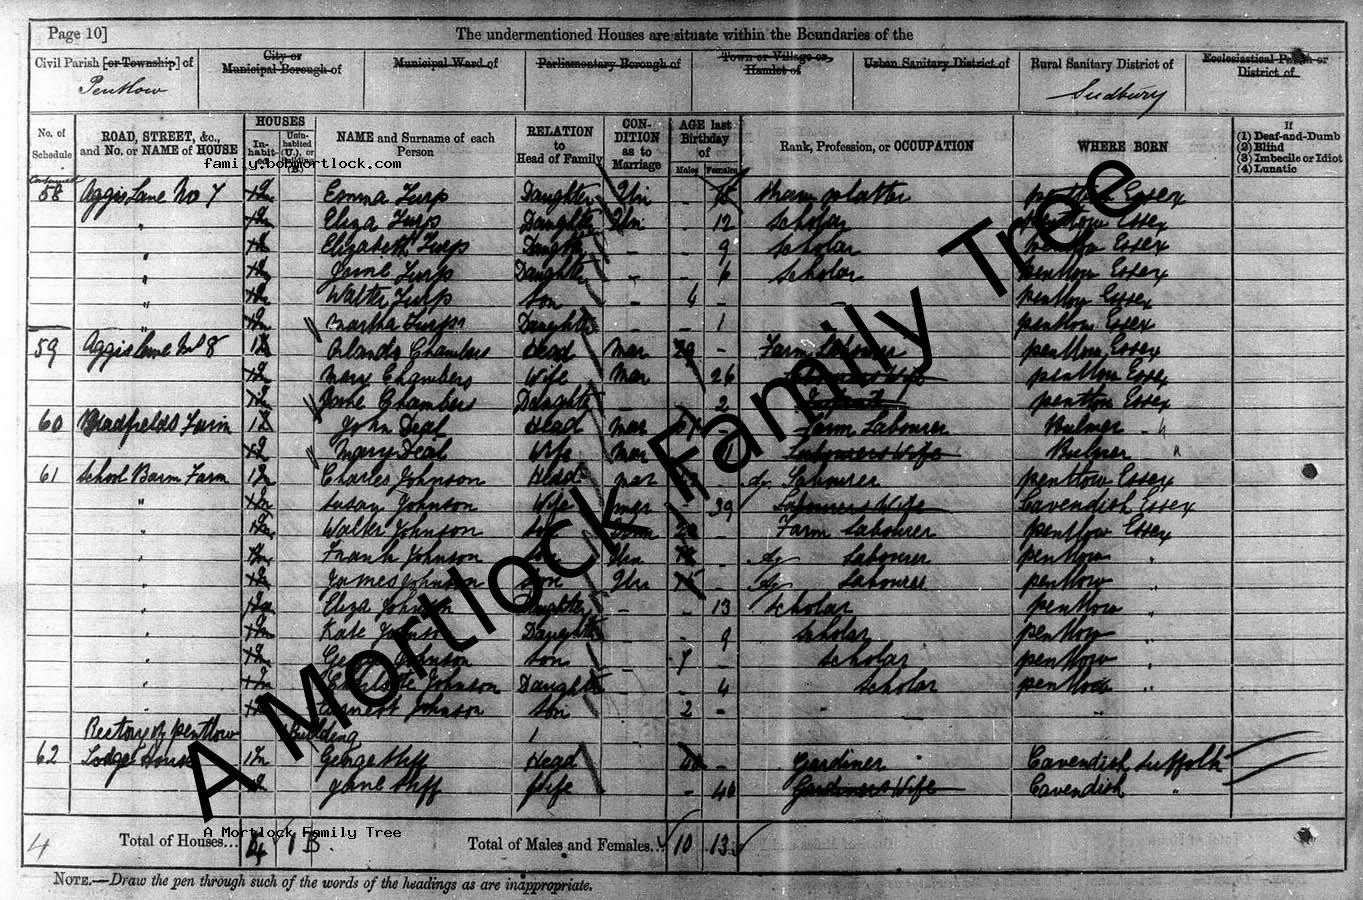 Page 10]
The undermentioned Houses are situate within the Boundaries of the
Civil Parish [or Township] of Pentlow
City or Municipal Borough of
Municipal Ward of
Parliamentary Borough of
Town or Village or Hamlet of
Urban Sanitary District of
Rural Sanitary District of Sudbury
Ecclesiastical Parish or District of
No. of Schedule
ROAD, STREET, &c., and No. or NAME of HOUSE
HOUSES
In-habit-ed
Unin-habited (U.), or Building (B.)
NAME and Surname of each Person
RELATION to Head of Family
CON-DITION as to Marriage
AGE last Birthday of
Males Females
Rank, Profession, or OCCUPATION
WHERE BORN
If
(1) Deaf-and-Dumb
(2) Blind
(3) Imbecile or Idiot
(4) Lunatic
family.bobmortlock.com
58 Aggis Lane No 7 Emma Turp Daughter Un Pentlow Essex
" Eliza Turp Daughter Un 12 Scholar Pentlow Essex
" Elizabeth Turp Daughter - 9 Scholar Essex
" Jane Turp Daughter - 6 Scholar Pentlow Essex
" Walter Turp Son - 4 - Pentlow Essex
" Martha Turp Daughter - 1 Pentlow Essex
59 Aggis Lane No 8 Orlando Chambers Head Mar 29 - Farm Labourer Pentlow Essex
Mary Chambers Wife Mar 26 Labourers Wife Pentlow Essex
Jane Chambers Daughter - 2 Pentlow Essex
60 Farm John Deal Head Mar Farm Labourer Bulmer "
Mary Deal Wife Mar Labourers Wife Bulmer "
61 School Barn Farm Charles Johnson Head Mar Ag Labourer Pentlow Essex
" Susan Johnson Wife Mar 39 Labourers Wife Cavendish Essex
" Walter Johnson Son 20 Farm Labourer Pentlow Essex
" Frank Johnson Son Un Ag Labourer Pentlow "
" James Johnson Son Un 15 Ag Labourer Pentlow "
" Eliza Johnson Daughter - 13 Scholar Pentlow "
" Kate Johnson Daughter - 9 Scholar Pentlow "
" George Johnson Son - 7 - Scholar Pentlow "
" Charlotte Johnson Daughter - 4 Scholar Pentlow "
" Ernest Johnson Son 2 - "
Rectory of Pentlow Building 1
62 Lodge House George Stiff Head - Gardiner Cavendish Suffolk
Jane Stiff Wife - 40 Gardiners Wife Cavendish "
A Mortlock Family Tree
4
Total of Houses... 4 1 B
A Mortlock Family Tree
Total of Males and Females... 10 13
NOTE.—Draw the pen through such of the words of the headings as are inappropriate.